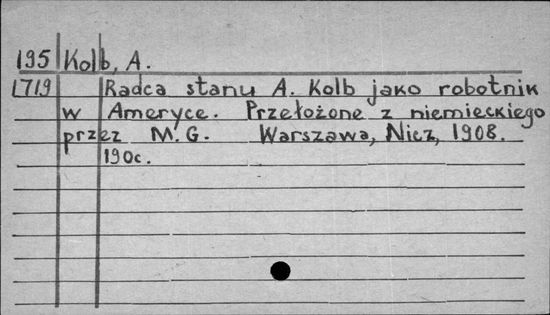 195 Kolb, A.
1719 Radca stanu A. Kolb jako robotnik
w Ameryce. Przełożone z niemieckiego
przez M.G. Warszawa, Nicz, 1908.
190c.